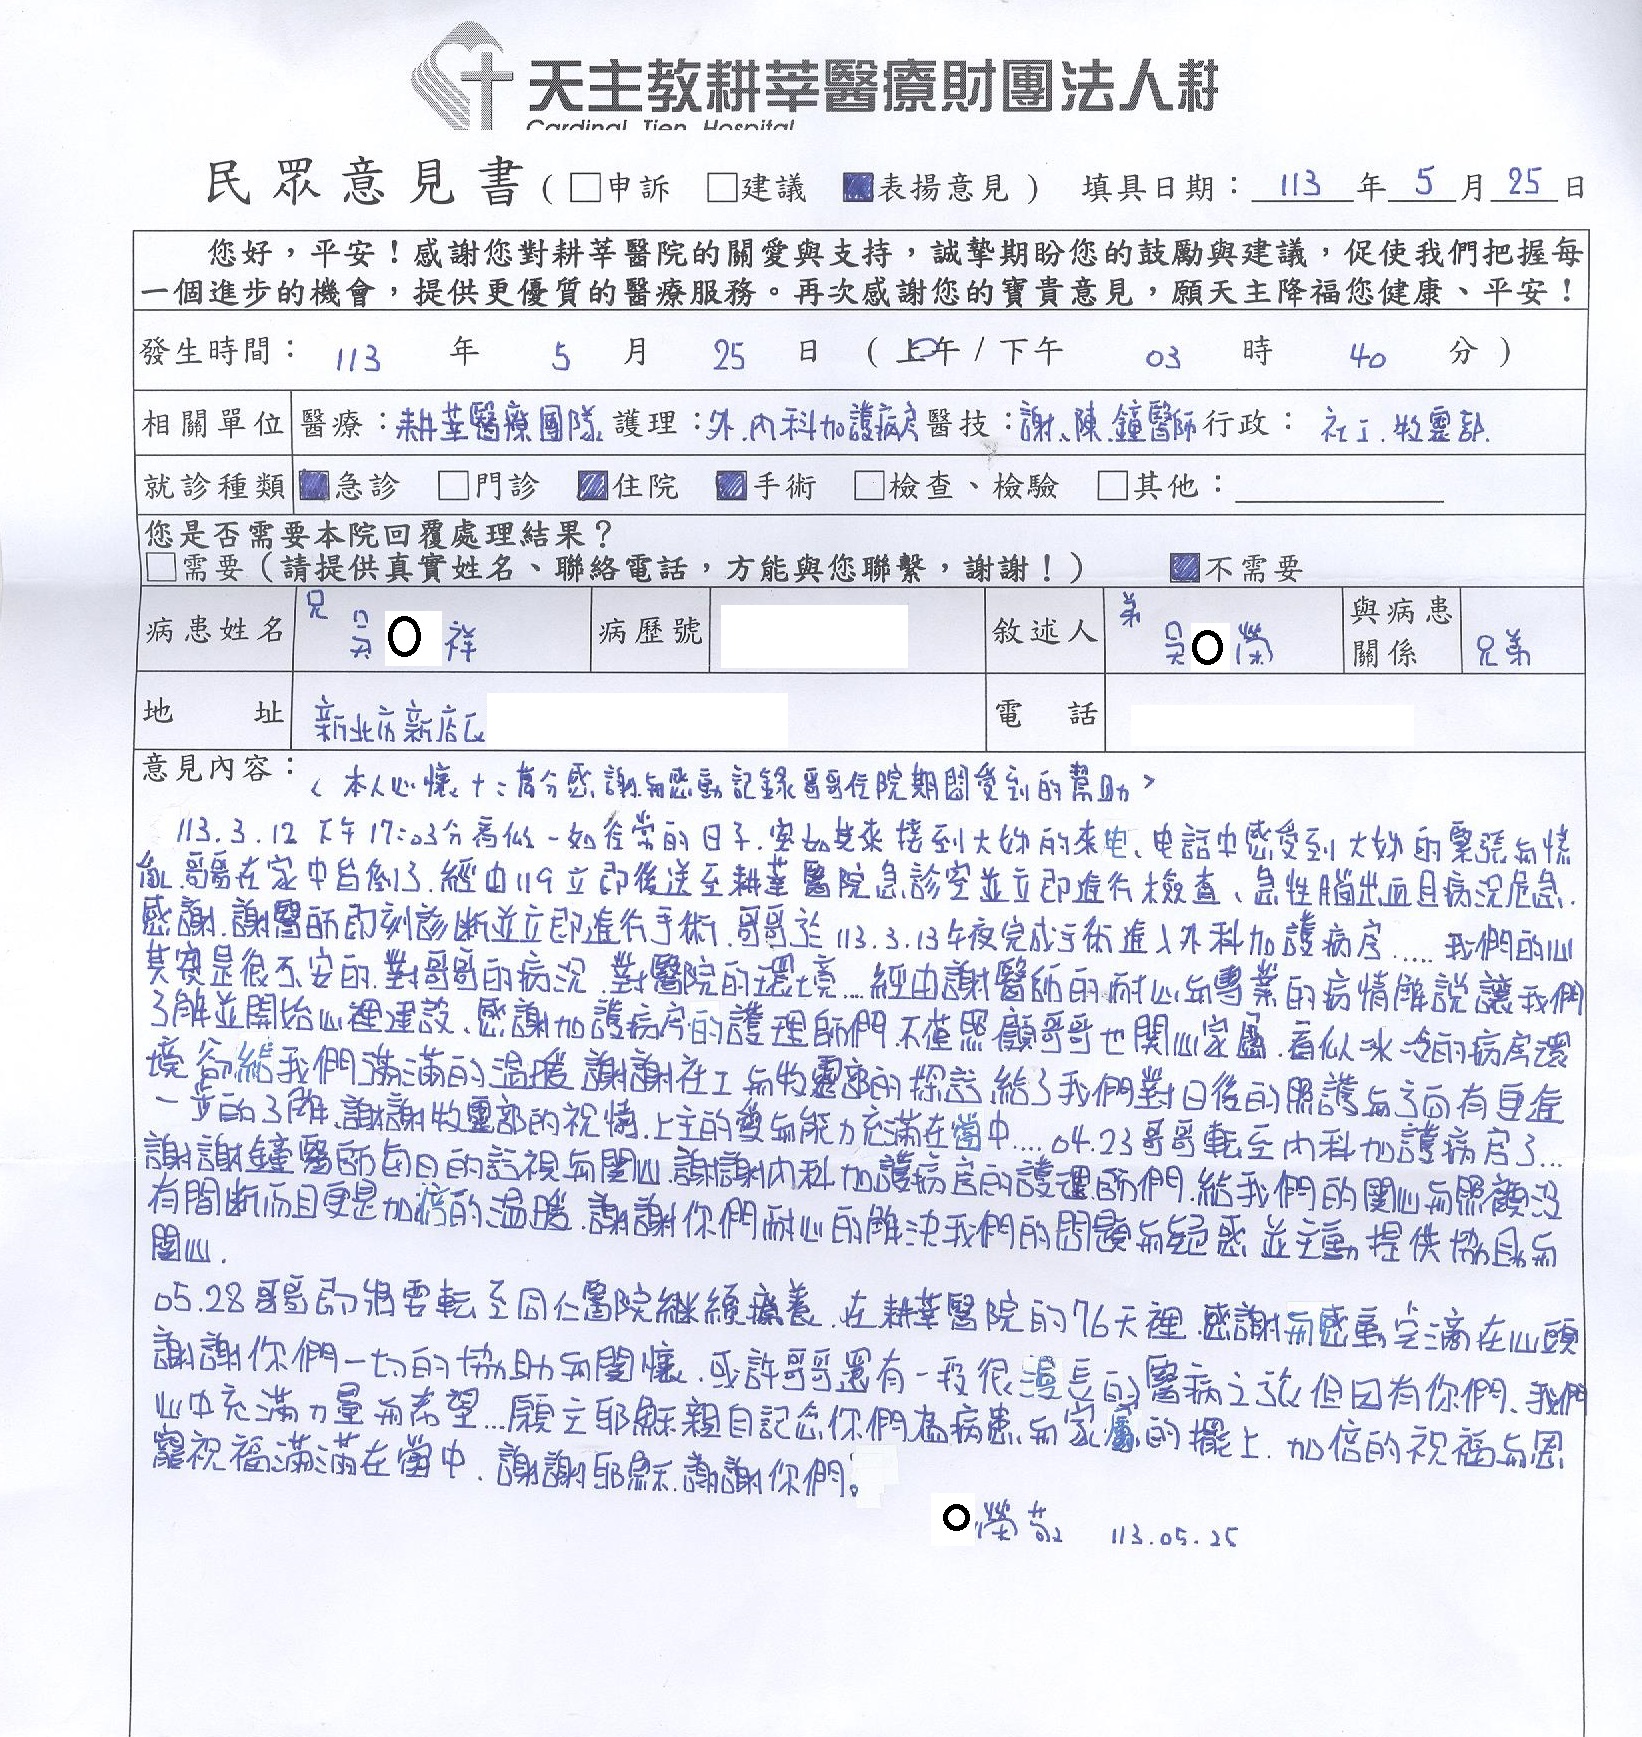 天主教耕莘醫療財團法人耕
Cardinal Tien Hospital
民眾意見書(□申訴 □建議 ■表揚意見) 填具日期：113年5月25日
您好，平安！感謝您對耕莘醫院的關愛與支持，誠摯期盼您的鼓勵與建議，促使我們把握每
一個進步的機會，提供更優質的醫療服務。再次感謝您的寶貴意見，願天主降福您健康、平安！
發生時間： 113 年 5 月 25 日 (上午/下午 03 時 40 分)
相關單位 醫療：耕莘醫療團隊 護理：外.內科加護病房 醫技：謝、陳、鐘醫師 行政：社工.牧靈部.
就診種類 ■急診 □門診 ■住院 ■手術 □檢查、檢驗 □其他：
您是否需要本院回覆處理結果？
□需要(請提供真實姓名、聯絡電話，方能與您聯繫，謝謝！) ■不需要
病患姓名 兄 吳O祥 病歷號 敘述人 弟 吳O榮 與病患關係 兄弟
地址 新北市新店區 電話
意見內容：〈本人心懷十二萬分感謝與感動記錄哥哥住院期間受到的幫助〉
113.3.12 下午17:03分看似一如往常的日子.突如其來接到大姊的來电、电話中感受到大姊的緊張與慌
亂.哥哥在家中昏倒了.經由119立即後送至耕莘醫院急診室並立即進行檢查、急性腦出血且病況危急.
感謝.謝醫師即刻診斷並立即進行手術.哥哥於113.3.13午夜完成手術進入外科加護病房.....我們的心
其實是很不安的.對哥哥的病況.對醫院的環境...經由謝醫師的耐心與專業的病情解說讓我們
了解並開始心裡建設、感謝加護病房的護理師們.不僅照顧哥哥也關心家屬.看似冰冷的病房環
境卻給我們滿滿的溫暖.謝謝社工與牧靈部的探訪.給了我們對日後的照護與方向有更進
一步的了解.謝謝牧靈部的祝禱.上主的愛與能力充滿在當中....04.23哥哥転至內科加護病房了...
謝謝鐘醫師每日的訪視與關心.謝謝內科加護病房的護理師們.給我們的關心與照顧沒
有間斷而且更是加倍的溫暖.謝謝你們耐心的解決我們的問題與疑惑並主動提供協助與
關心.
05.28哥哥即將要転至同仁醫院繼續療養.在耕莘醫院的76天裡.感謝與感動充滿在心頭
謝謝你們一切的協助與關懷.或許哥哥還有一段很漫長的醫病之旅但因有你們、我們
心中充滿力量與希望...願主耶穌親自記念你們為病患與家屬的擺上.加倍的祝福與恩
寵祝福滿滿在當中.謝謝耶穌.謝謝你們。
O榮敬 113.05.25